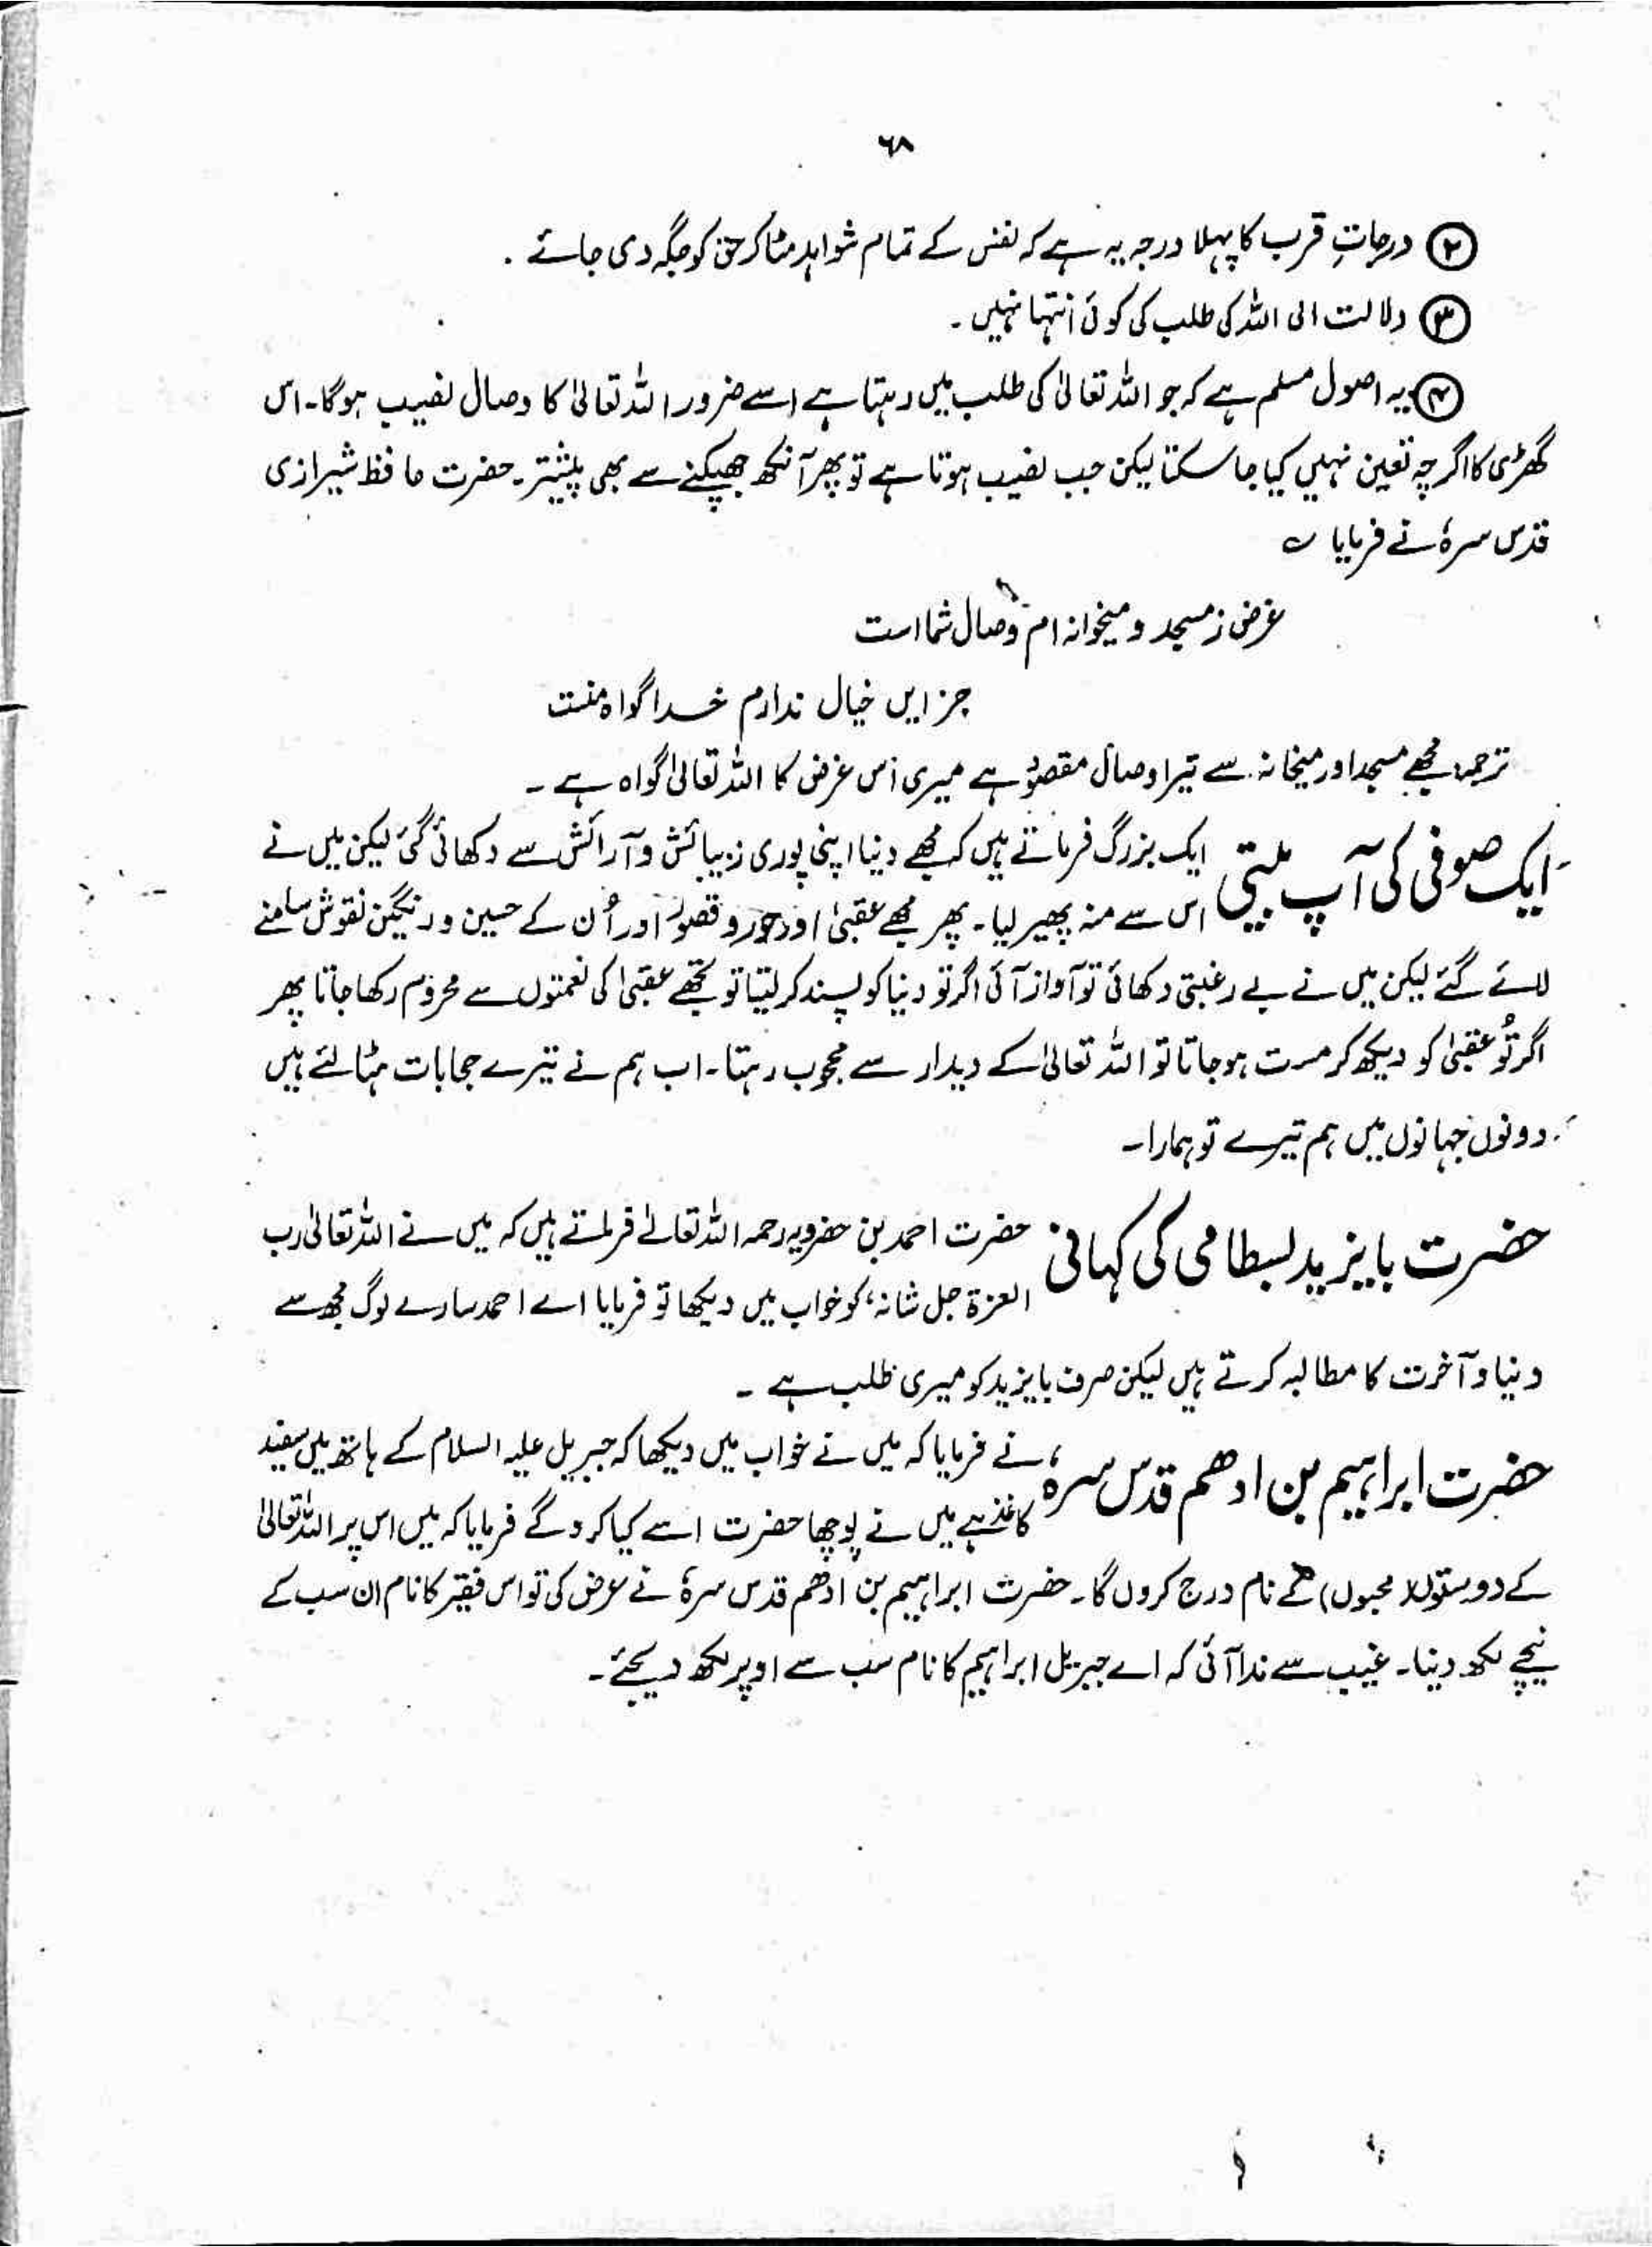 ۶۸
② درجاتِ قرب کا پہلا درجہ یہ ہے کہ نفس کے تمام شواہد مٹا کر حق کو جگہ دی جائے ۔
③ دلالت الی اللہ کی طلب کی کوئی انتہا نہیں ۔
④ یہ اصول مسلم ہے کہ جو اللہ تعالیٰ کی طلب میں رہتا ہے اسے ضرور اللہ تعالیٰ کا وصال نصیب ہوگا۔ اس
گھڑی کا اگرچہ تعین نہیں کیا جا سکتا لیکن جب نصیب ہوتا ہے تو پھر آنکھ جھپکنے سے بھی پیشتر۔ حضرت حافظ شیرازی
قدس سرہٗ نے فرمایا ؎
غرض ز مسجد و میخوانہ ام وصال شما است
جز ایں خیال ندارم خدا گواہ منست
ترجمہ مجھے مسجد اور میخانہ سے تیرا وصال مقصود ہے میری اس غرض کا اللہ تعالیٰ گواہ ہے ۔
ایک صوفی کی آپ بیتی ایک بزرگ فرماتے ہیں کہ مجھے دنیا اپنی پوری زیبائش و آرائش سے دکھائی گئی لیکن میں نے
اس سے منہ پھیر لیا۔ پھر مجھے عقبیٰ اور حور و قصور اور اُن کے حسین و رنگین نقوش سامنے
لائے گئے لیکن میں نے بے رغبتی دکھائی تو آواز آئی اگر تو دنیا کو پسند کر لیتا تو تجھے عقبیٰ کی نعمتوں سے محروم رکھا جاتا پھر
اگر تُو عقبیٰ کو دیکھ کر مست ہو جاتا تو اللہ تعالیٰ کے دیدار سے محجوب رہتا۔ اب ہم نے تیرے حجابات ہٹا لئے ہیں
دونوں جہانوں میں ہم تیرے تو ہمارا۔
حضرت بایزید بسطامی کی کہانی حضرت احمد بن حضرویہ رحمہ اللہ تعالےٰ فرماتے ہیں کہ میں نے اللہ تعالیٰ رب
العزۃ جل شانہ، کو خواب میں دیکھا تو فرمایا اے احمد سارے لوگ مجھ سے
دنیا و آخرت کا مطالبہ کرتے ہیں لیکن صرف بایزید کو میری طلب ہے ۔
حضرت ابراہیم بن ادھم قدس سرہ، نے فرمایا کہ میں نے خواب میں دیکھا کہ جبریل علیہ السلام کے ہاتھ میں سفید
کاغذ ہے میں نے پوچھا حضرت اسے کیا کرو گے فرمایا کہ میں اس پر اللہ تعالیٰ
کے دوستوں (محبوں) کے نام درج کروں گا۔ حضرت ابراہیم بن ادھم قدس سرہٗ نے عرض کی تو اس فقیر کا نام ان سب کے
نیچے لکھ دینا۔ غیب سے ندا آئی کہ اے جبریل ابراہیم کا نام سب سے اوپر لکھ دیجئے۔